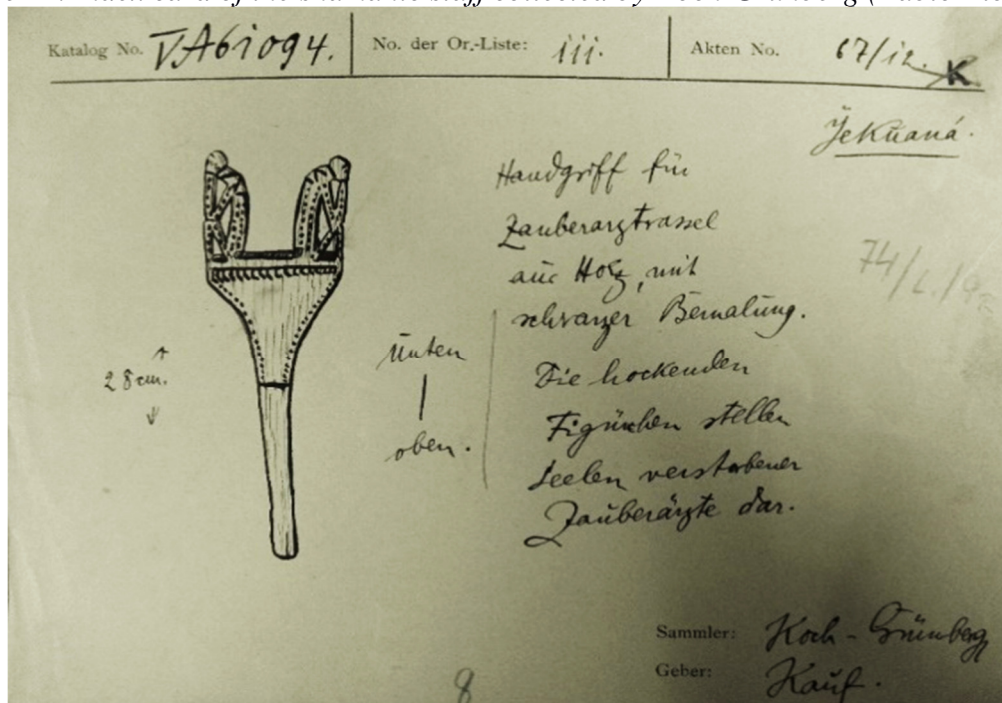 Katalog No. VA61094.
No. der Or.-Liste: iii.
Akten No. 67/12. K
Jekuaná.
Handgriff für
Zauberarztrassel
aus Holz, mit
schwarzer Bemalung.
Die hockenden
Figürchen stellen
Seelen verstorbener
Zauberärzte dar.
28 cm.
Unten
oben.
74/
Sammler: Koch-Grünberg
Geber: Kauf.
8